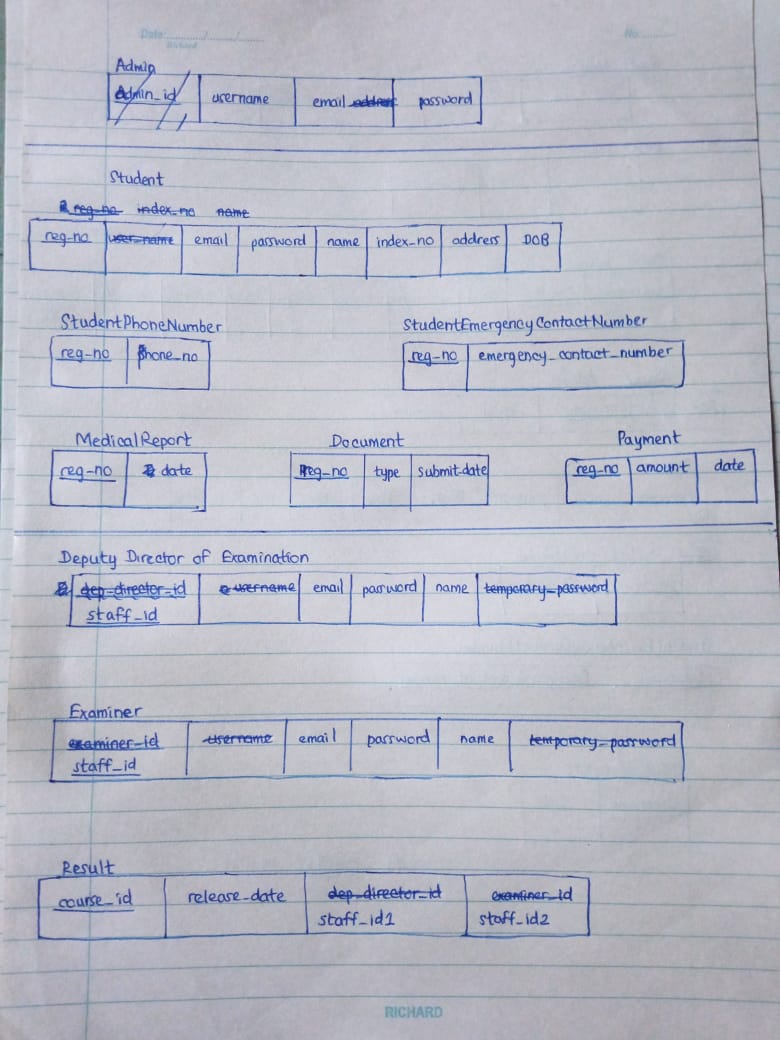 Date: ......../......../........ No. ..........
Richard
Admin
admin_id username email address password
Student
reg-no index-no name
reg-no user-name email password name index-no address DOB
StudentPhoneNumber StudentEmergencyContactNumber
reg-no phone_no reg-no emergency_contact_number
MedicalReport Document Payment
reg-no date reg-no type submit-date reg-no amount date
Deputy Director of Examination
dep-director-id username email password name temporary-password
staff_id
Examiner
examiner-id username email password name temporary-password
staff_id
Result
course_id release-date dep-director-id examiner-id
staff_id1 staff_id2
RICHARD